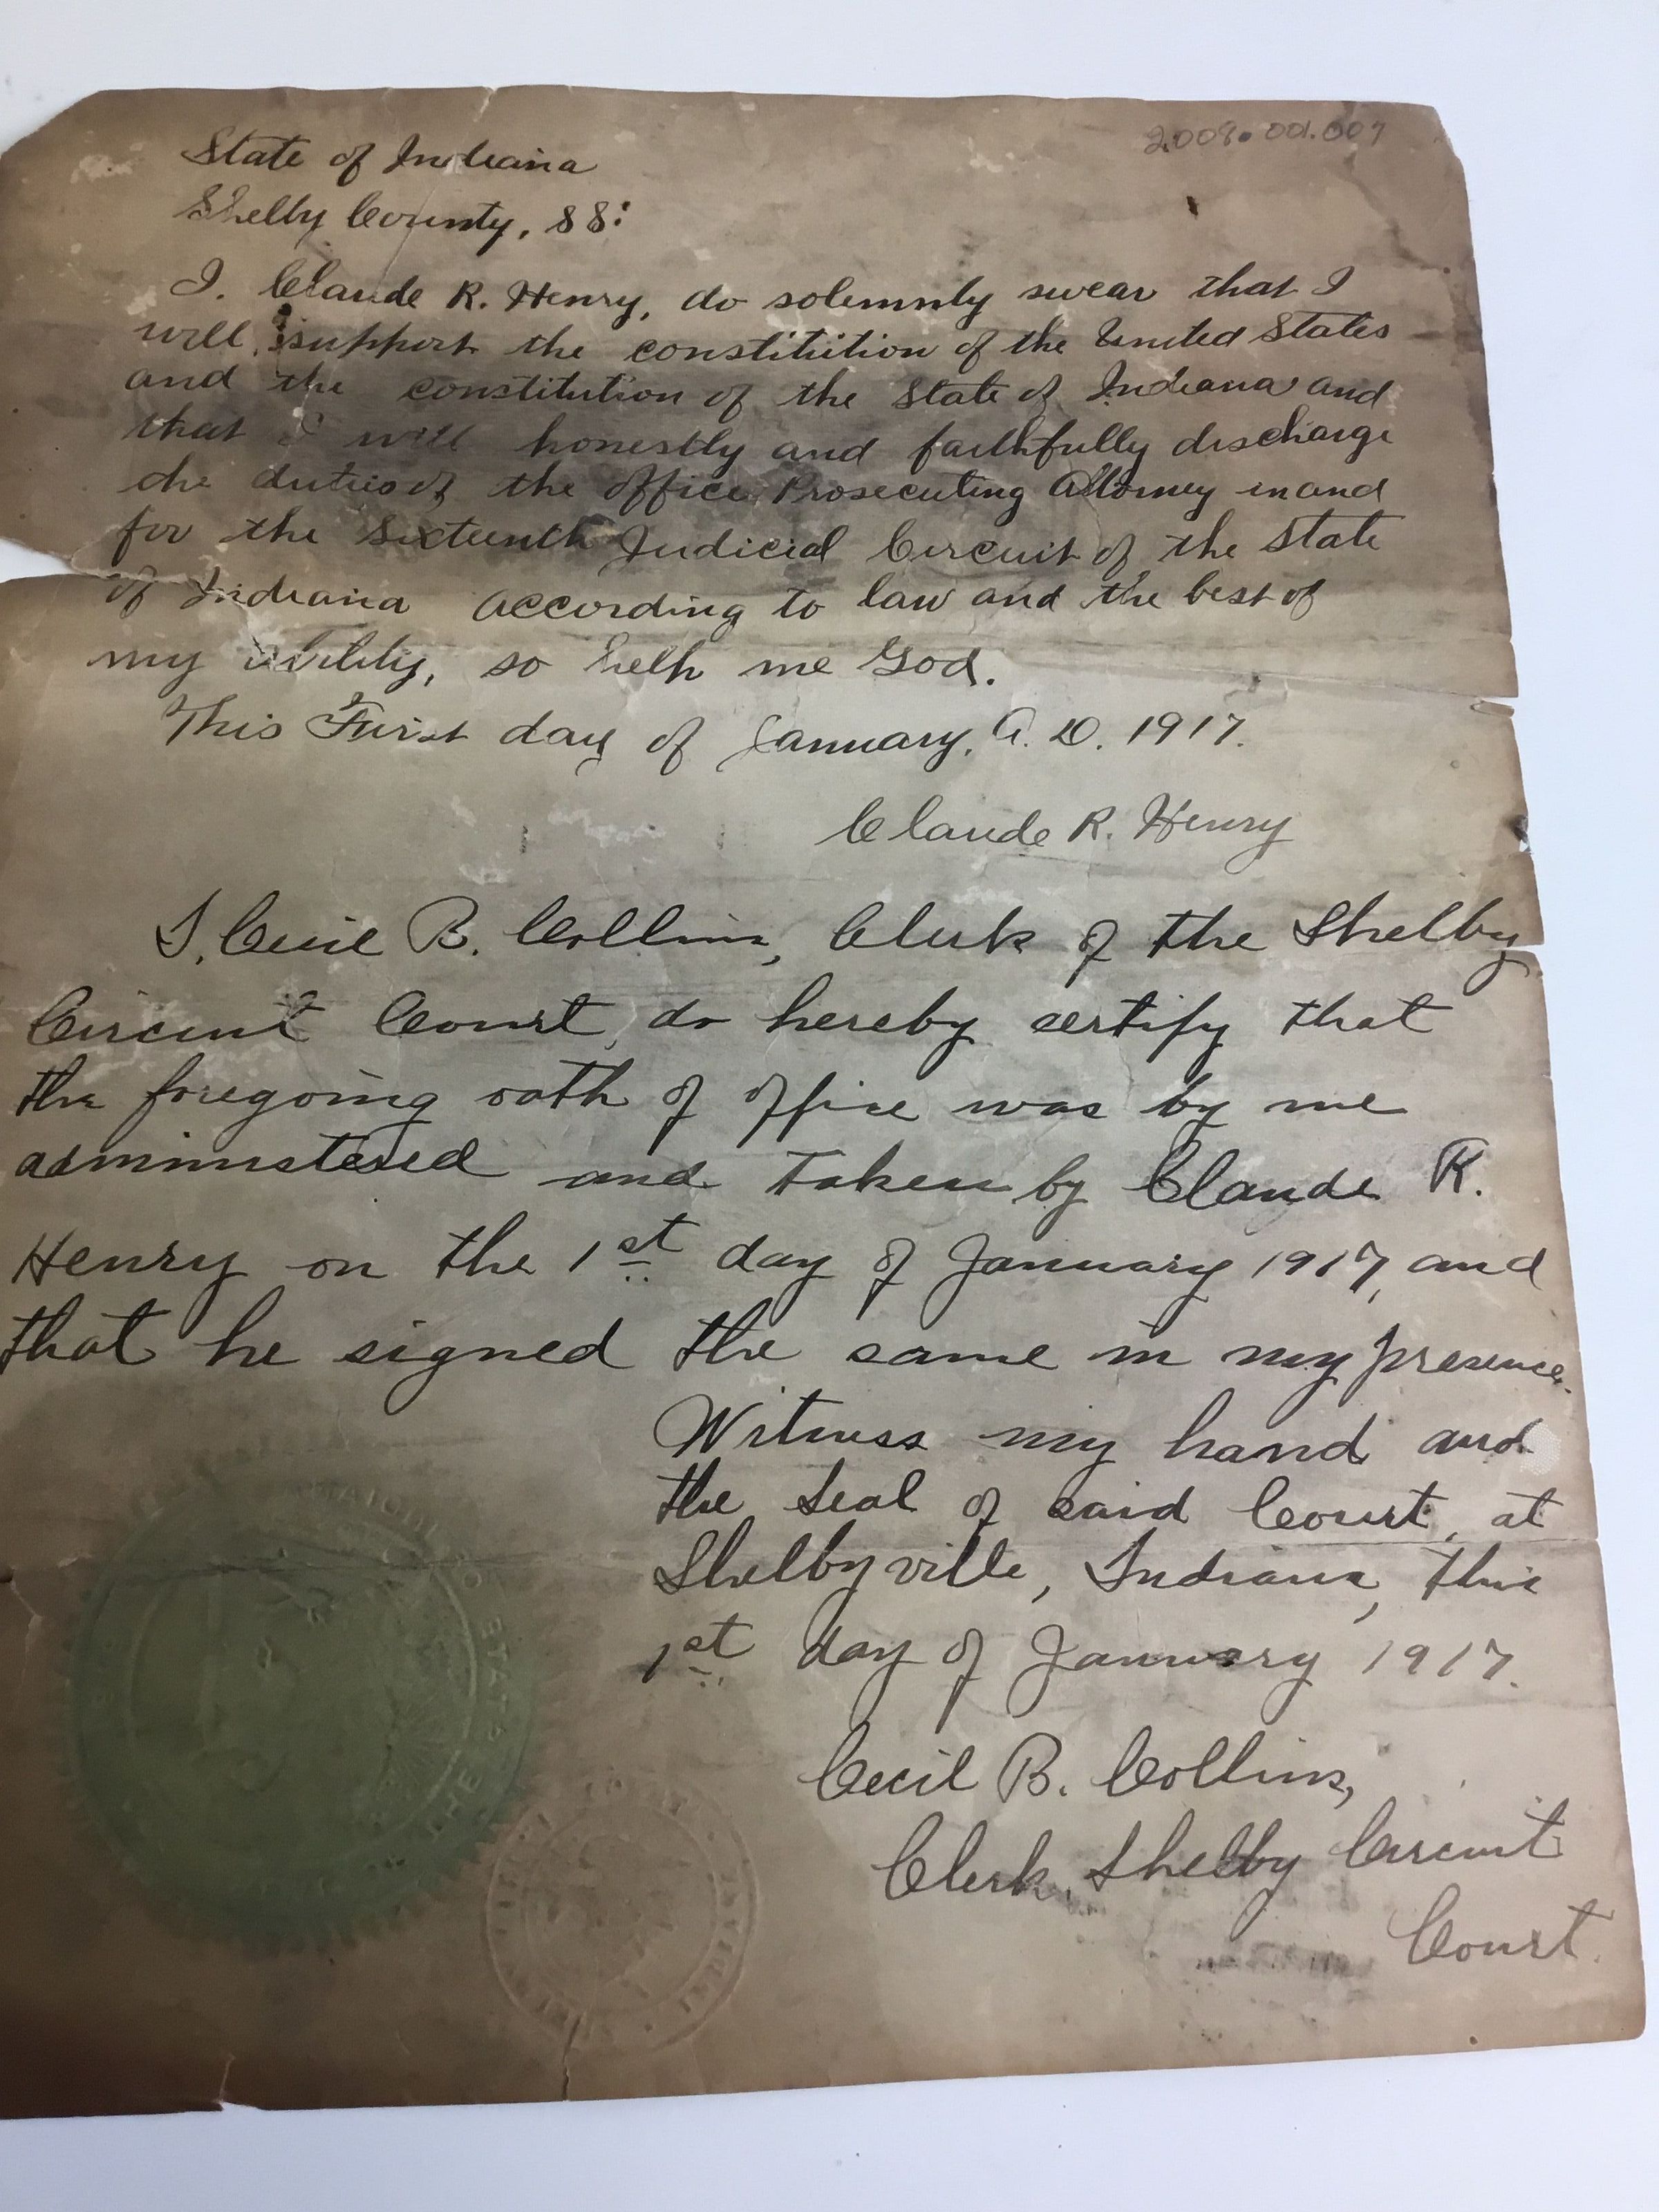 2008.001.007
State of Indiana
Shelby County, SS:
I, Claude R. Henry, do solemnly swear that I
will support the constitution of the United States
and the constitution of the State of Indiana and
that I will honestly and faithfully discharge
the duties of the office Prosecuting Attorney in and
for the Sixteenth Judicial Circuit of the State
of Indiana according to law and the best of
my ability, so help me God.
This First day of January, A. D. 1917.
Claude R. Henry
I, Cecil B. Collins, Clerk of the Shelby
Circuit Court, do hereby certify that
the foregoing oath of office was by me
administered and taken by Claude R.
Henry on the 1st day of January 1917, and
that he signed the same in my presence.
Witness my hand and
the seal of said Court, at
Shelbyville, Indiana, this
1st day of January 1917.
Cecil B. Collins,
Clerk, Shelby Circuit
Court.
STATE
THE
INDIANA